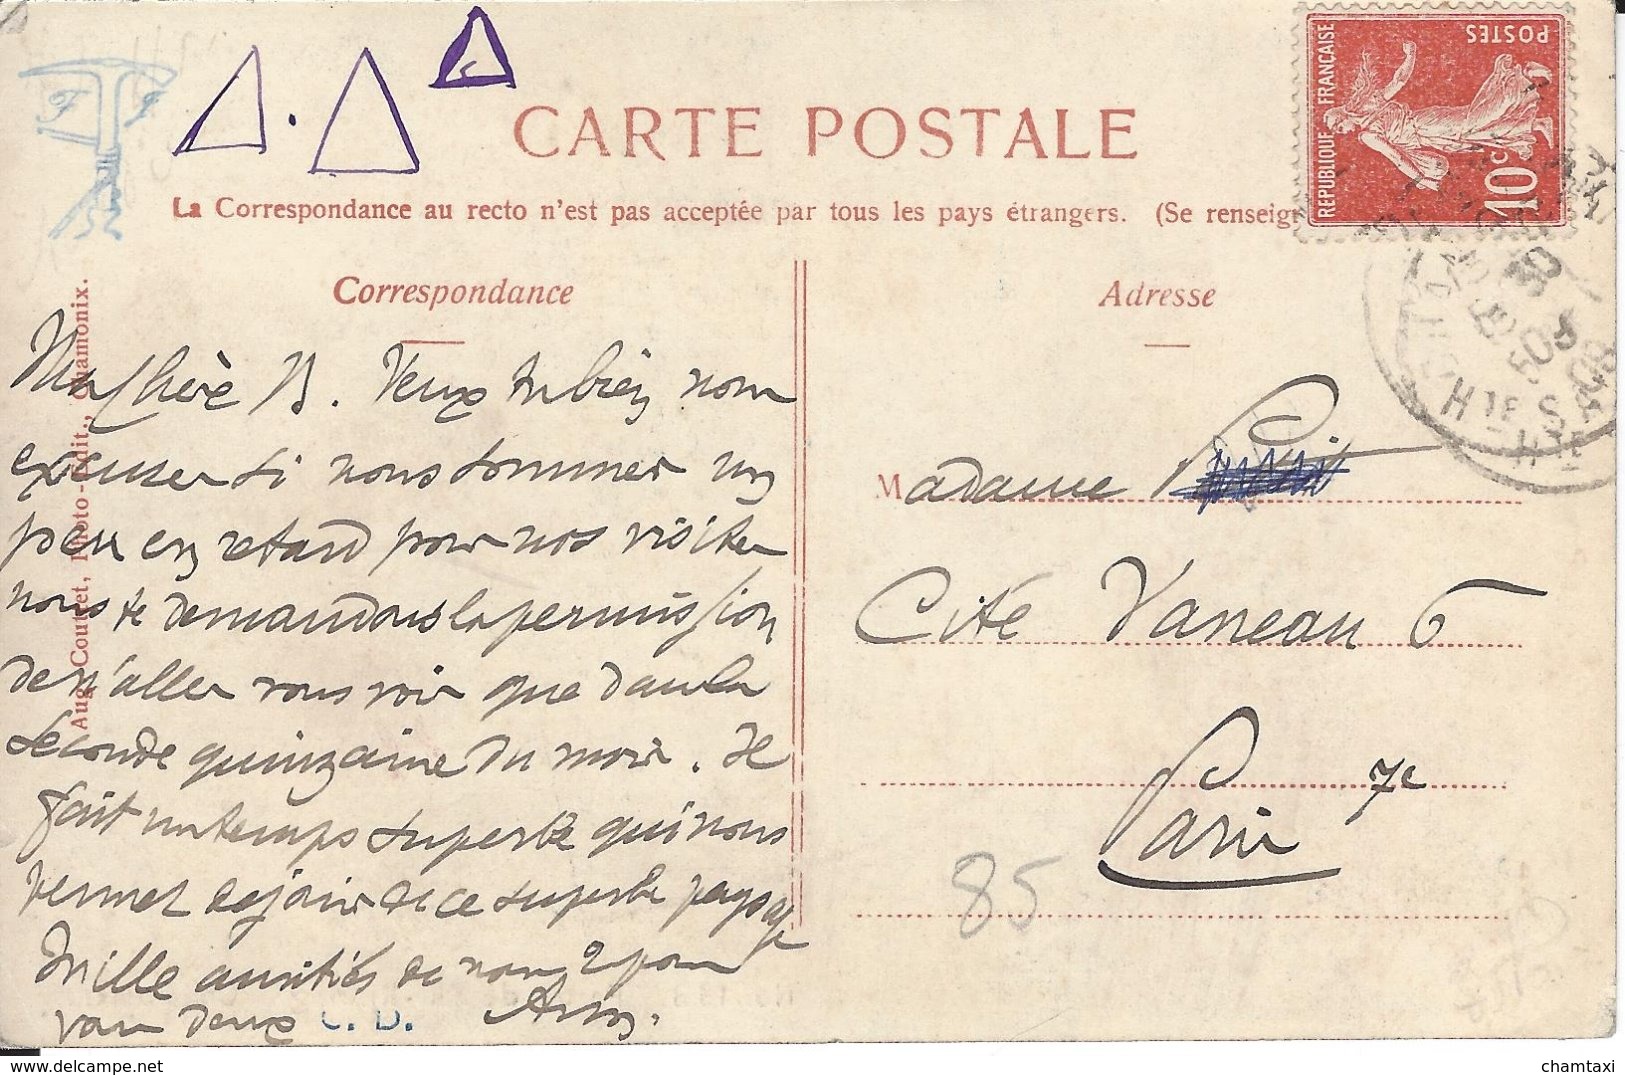 CARTE POSTALE
La Correspondance au recto n'est pas acceptée par tous les pays étrangers. (Se renseig
Correspondance
Ma Chère B. Veux tu bien nous
excuser si nous sommes un
peu en retard pour nos visites
nous te demandons la permission
de n'aller vous voir que dans la
seconde quinzaine du mois. Il
fait un temps superbe qui nous
permet de jouir de ce superbe paysage
Mille amitiés de nous 2 pour
vous deux
C. B.
Aug. Couttet, Photo-Édit., Chamonix.
Adresse
Madame
Cité Vaneau 6
Paris 7e
85
REPUBLIQUE FRANÇAISE
POSTES
10c
HTE S
chamtaxi